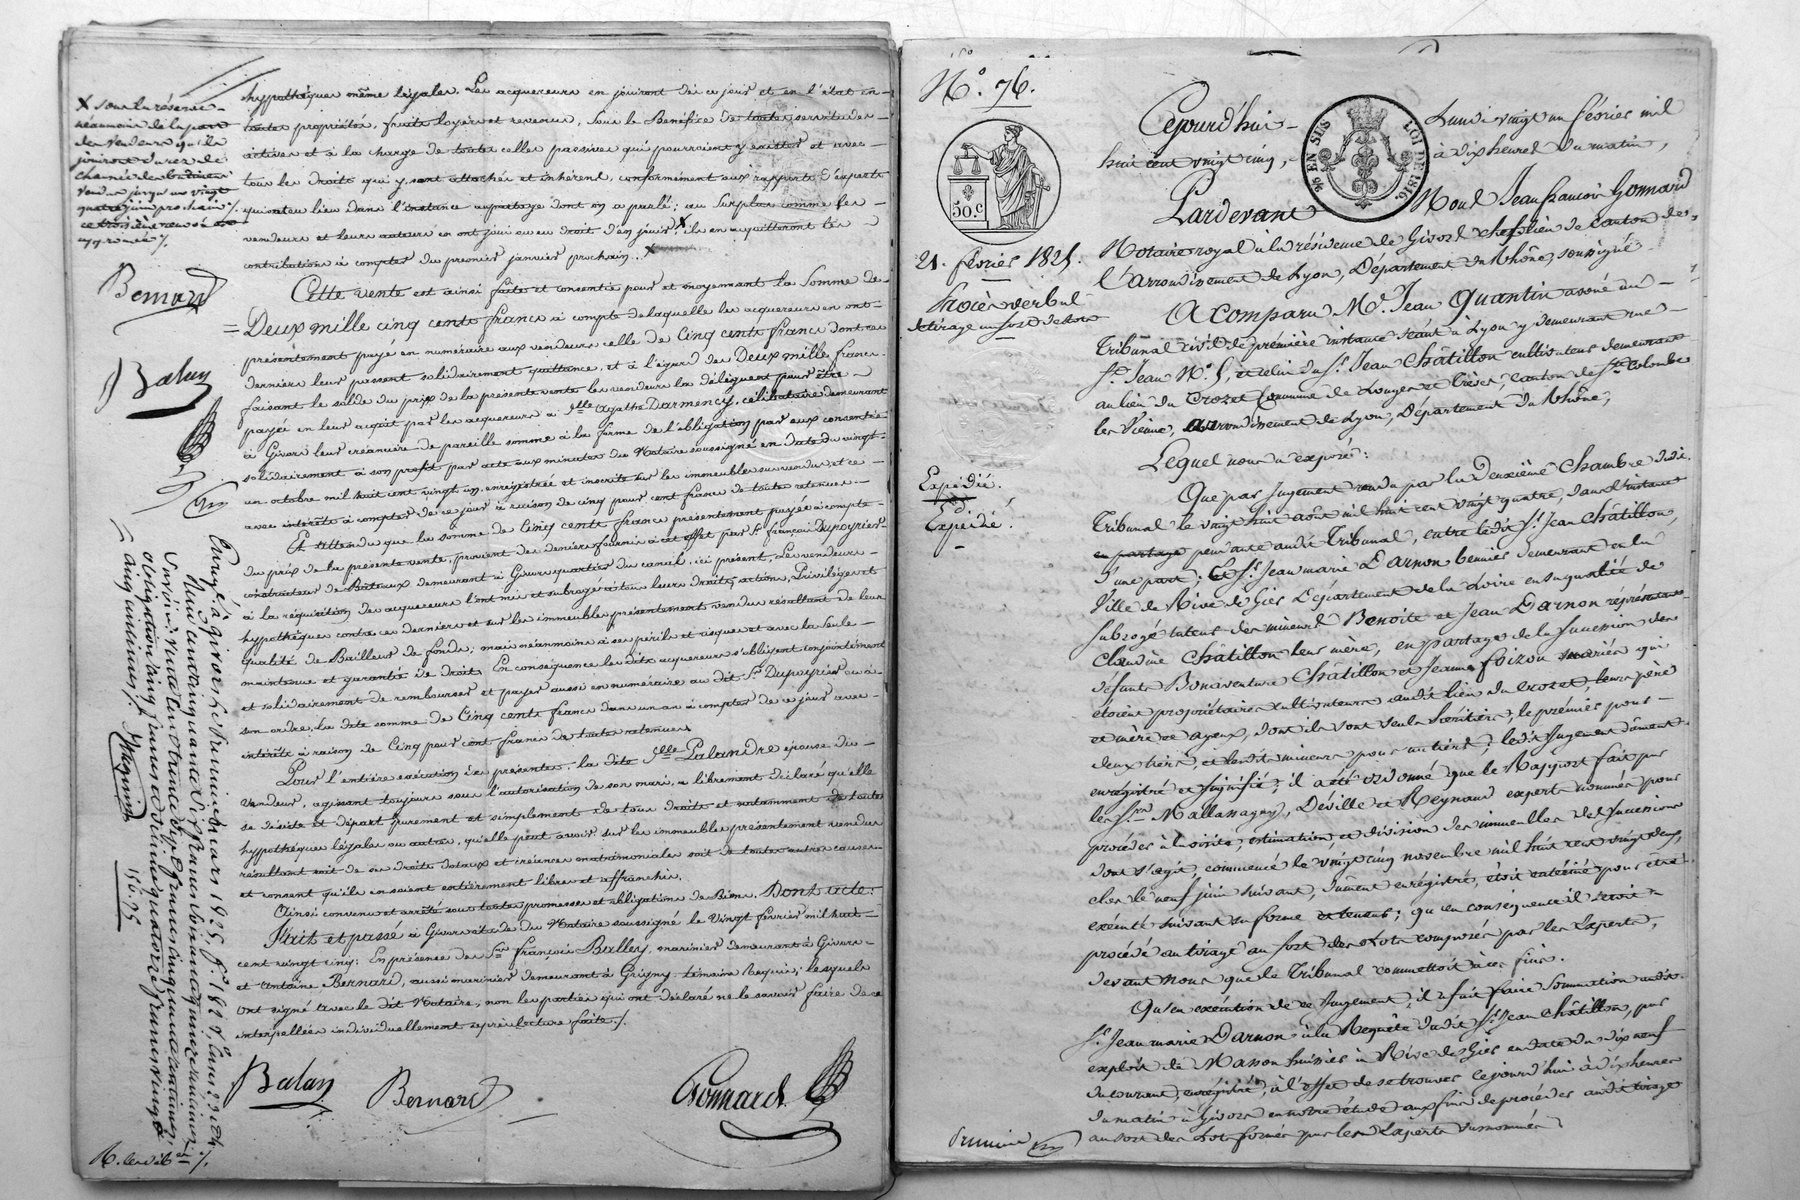 hypothéques même légales. Les acquereurs en jouiront dès ce jour et en l'état en
toutes propriétés, fruits loyers et revenus, sous le Bénéfice de toutes servitudes
actives et à la charge de toutes celles passives qui pourroient y exister et avec
tous les droits qui y sont attachés et inhérens, conformément aux rapports d'experts
qui ont eu lieu dans l'instance en partage dont on a parlé; au surplus comme les
vendeurs et leurs auteurs en ont joui ou eu droit d'en jouir; X ils en acquitteront les
contributions à compter du premier janvier prochain. X
Cette vente est ainsi faite et consentie pour et moyennant la Somme de
= Deux mille cinq cents francs à compte de laquelle les acquereurs en ont
présentement payé en numéraire aux vendeurs celle de Cinq cents francs dont ces
derniers leur passent solidairement quittance, et à l'égard des Deux mille francs
faisant le solde du prix de la présente vente les vendeurs la délèguent pour être
payée en leur acquit par les acquereurs à Dlle Agathe Darmency, célibataire demeurant
à Givors leur créancière de pareille somme à la forme de l'obligation par eux consentie
solidairement à son profit par acte aux minutes du Notaire soussigné en date du vingt
un octobre mil huit cent vingt un, enregistrée et inscrite sur les immeubles sus vendus et ce
avec intérêts à compter de ce jour à raison de cinq pour cent francs de toutes retenues
Et attendu que la somme de Cinq cents francs présentement payée à compte
du prix de la présente vente, provient des deniers fournis à cet effet par Sr françois Dupoyrier
constructeur de Bateaux demeurant à Givors quartier du canal, ici présent, Les vendeurs
à la réquisition des acquereurs l'ont mis et subrogé à tous leurs droits, actions, Privilèges et
hypothèques contre ces derniers et sur les immeubles présentement vendus résultant de leur
qualité de Bailleur de fonds; mais néanmoins à ses périls et risques et avec la seule
maintenue et garantie de droit. En conséquence les dits acquereurs s'obligent conjointement
et solidairement de rembourser et payer aussi en numéraire au dit Sr Dupoyrier ou à
son ordre, la dite somme de Cinq cents francs dans un an à compter de ce jour avec
intérêts à raison de Cinq pour cent francs de toutes retenues
Pour l'entière exécution des présentes, la dite Dlle Palandre épouse du
vendeur, agissant toujours sous l'autorisation de son mari, a librement déclaré qu'elle
se désiste et départ purement et simplement de tous droits et notamment de toutes
hypothèques légales ou autres, qu'elle peut avoir sur les immeubles présentement vendus
résultant soit de ses droits dotaux et créances matrimoniales soit de toutes autres causes
et consent qu'ils en soient entièrement libres et affranchis.
Ainsi convenu et arrêté sous toutes promesses et obligations de Biens. Dont acte:
Fait et passé à Givors étude du Notaire soussigné le Vingt février mil huit
cent vingt cinq: En présence des Srs François Balley, marinier demeurant à Givors
et Antoine Bernard, aussi marinier demeurant à Grigny témoins Requis; lesquels
ont signé avec le dit Notaire, non les parties qui ont déclaré ne le savoir faire de ce
interpellées individuellement après lecture faite ./.
Balay Bernard Gonnard
X sous la réserve
néanmoins de la part
des vendeurs qu'ils
jouiront du rez de
chaussée des bâtimens
vendus jusqu'au vingt
quatre juin prochain
ce troisième renvoi
approuvé ./.
Bernard
Balay
Enregé à Givors le
mars 1825, fo
N° 76.
50 C
21. février 1825.
Procès verbal
de tirage au sort de lots
Expédié.
Expédié.
95 EN SUS LOI DE 1816
Cejourd'hui Lundi vingt un février mil
huit cent vingt cinq, à dix heures du matin,
Pardevant Nous Jean françois Gonnard
Notaire royal à la résidence de Givors chef lieu de canton de
l'arrondissement de Lyon, Département du Rhône, soussigné
A comparu Me Jean Quantin avoué au
Tribunal civil de première instance séant à Lyon y demeurant rue
St Jean N° 5, et celui du Sr Jean Châtillon cultivateur demeurant
au lieu du Crozet Commune de Longes et Trèves, canton de Ste Colombe
les Vienne, arrondissement de Lyon, Département du Rhône,
Lequel nous a exposé:
Que par Jugement rendu par la Deuxième Chambre dudit
Tribunal le vingt huit août mil huit cent vingt quatre, dans l'instance
en partage pendante audit Tribunal, entre ledit Sr Jean Châtillon,
d'une part; Et Sr Jean marie Darnon vernier demeurant en la
Ville de Rive de Gier Département de la Loire en sa qualité de
subrogé tuteur des mineurs Benoite et Jean Darnon représentans
Claudine Châtillon leur mère, en partage de la Succession des
défunts Bonaventure Châtillon et Jeanne foizon mariés qui
étoient propriétaires cultivateurs audit lieu du Crozet, leurs père
et mère et ayeux, dont ils sont seuls héritiers, le premier pour
deux tiers, et lesdits mineurs pour un tiers; ledit Jugement dûment
enregistré et signifié; il a été ordonné que le Rapport fait par
les Srs Mallassagny, Déville et Reynaud experts nommés pour
procéder à la visite, estimation, et division des immeubles des successions
dont s'agit, commencé le vingt cinq novembre mil huit cent vingt deux,
clos le neuf juin suivant, dûment enregistré, étoit entériné pour être
exécuté suivant sa forme et teneur; qu'en conséquence il seroit
procédé au tirage au sort des Lots composés par les Experts,
devant nous que le Tribunal commettoit à ces fins.
Qu'en exécution de ce Jugement, il a fait faire sommation audit
Sr Jean marie Darnon à la Requête dudit Sr Jean Châtillon, par
exploit de Masson huissier à Rive de Gier en date du dix neuf
du courant, enregistré, à l'effet de se trouver cejourd'hui à dix heures
du matin à Givors en notre étude aux fins de procéder audit tirage
au sort des Lots formés par les Experts susnommés